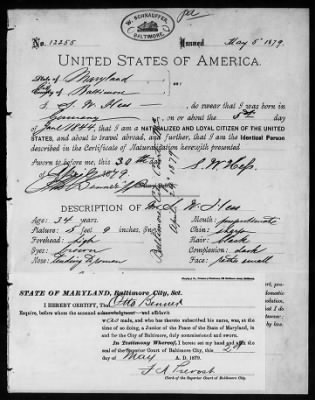 W. SCHNAUFFER,
BALTIMORE.
No. 12255 Issued May 5" 1879.
UNITED STATES OF AMERICA.
State of Maryland
City of Baltimore ss:
I, S. W. Hess, do swear that I was born in
Germany on or about the 5th day
of 1844, that I am a NATURALIZED AND LOYAL CITIZEN OF THE UNITED
STATES, and about to travel abroad, and further, that I am the Identical Person
described in the Certificate of Naturalization herewith presented
Sworn to before me, this 30th day
of April 1879. S. W. Hess
DESCRIPTION of Mr. S. W. Hess
Age: 34 years. Mouth: proportionate
Stature: 5 feet 9 inches, Eng. Chin: sharp
Forehead: high Hair: black
Eyes: brown Complexion: dark
Nose: Face: small
STATE OF MARYLAND, Baltimore City, Sct.
I HEREBY CERTIFY, That Otto Benner
Esquire, before whom the annexed acknowledgment and affidavit
was made, and who has thereto subscribed his name, was, at the
time of so doing, a Justice of the Peace of the State of Maryland, in
and for the City of Baltimore, duly commissioned and sworn.
In Testimony Whereof, I hereto set my hand and affix the
seal of the Superior Court of Baltimore City, this 2nd
day of May A. D. 1879.
F. A. Prevost
Clerk of the Superior Court of Baltimore City.